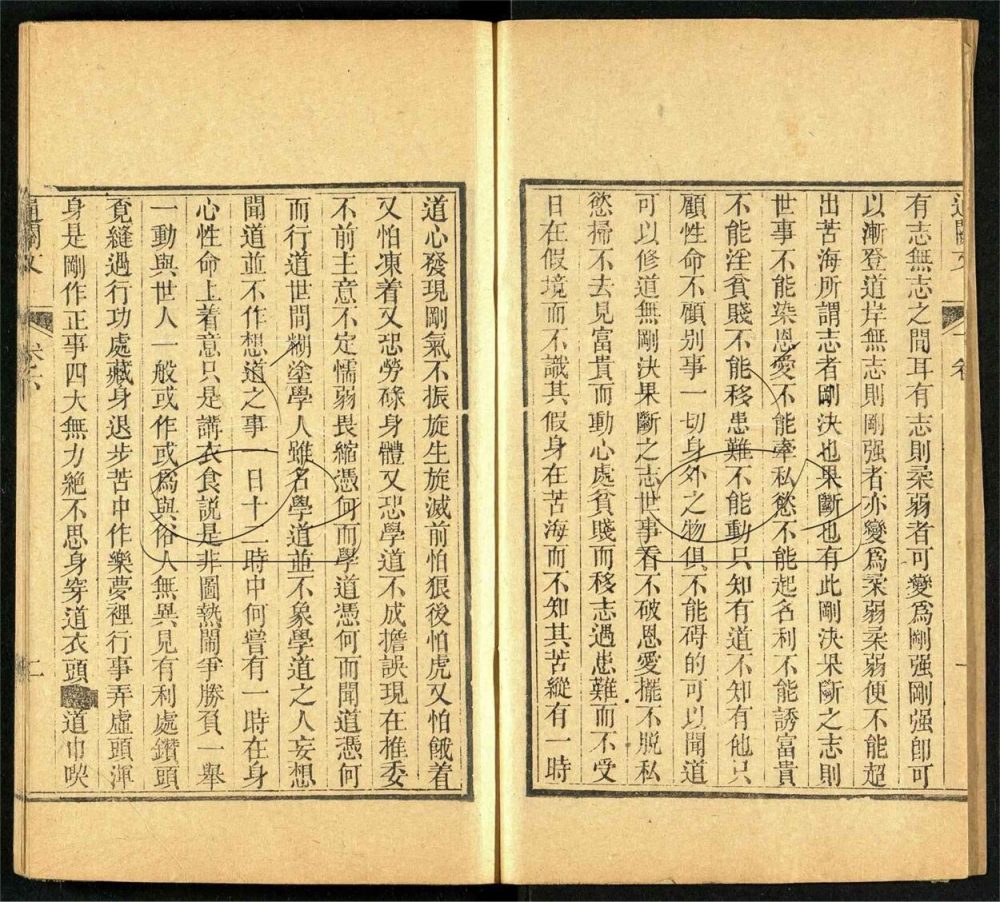 有志無志之間耳有志則柔弱者可變爲剛强剛强卽可
以漸登道岸無志則剛强者亦變爲柔弱柔弱便不能超
出苦海所謂志者剛決也果斷也有此剛決果斷之志則
世事不能染恩愛不能牽私慾不能起名利不能誘富貴
不能淫貧賤不能移患難不能動只知有道不知有他只
顧性命不顧别事一切身外之物俱不能碍的可以聞道
可以修道無剛決果斷之志世事看不破恩愛擺不脱私
慾掃不去見富貴而動心處貧賤而移志遇患難而不受
日在假境而不識其假身在苦海而不知其苦縱有一時
道心發現剛氣不振旋生旋滅前怕狠後怕虎又怕餓着
又怕凍着又恐勞碌身體又恐學道不成擔誤現在推委
不前主意不定懦弱畏縮憑何而學道憑何而聞道憑何
而行道世間糊塗學人雖名學道並不象學道之人妄想
聞道並不作想道之事 日十二時中何嘗有一時在身
心性命上着意只是講衣食説是非圖熱鬧爭勝負一舉
一動與世人一般或作或爲與俗人無異見有利處鑽頭
覔縫過行功處藏身退步苦中作樂夢裡行事弄虛頭渾
身是剛作正事四大無力絶不思身穿道衣頭 道巾喫
通關文 卷上